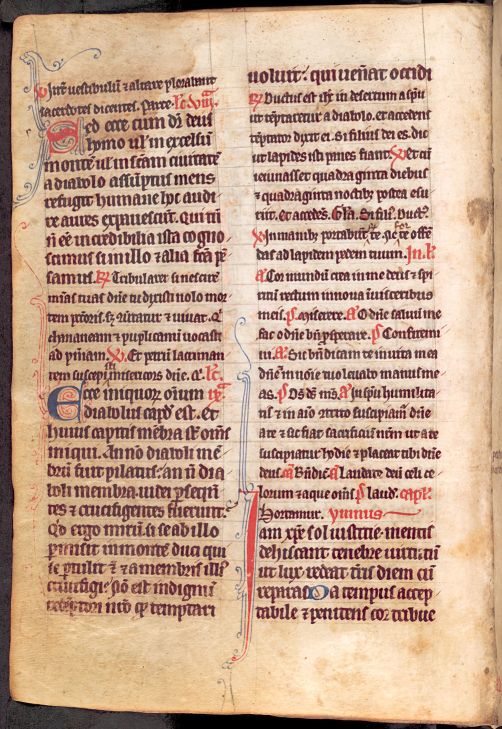 Inter vestibulu et altare plorabant
sacerdotes dicentes. Parce. Lc viii.
Sed ecce cum dr deus
homo vl in excelsum
monte vl in scam civitate
a diabolo assuptus mens
refugit humane hoc audi
re aures expavescut. Qui tn
n ee incredibilia ista cogno
scimus si in illo et alia fca p
samus. R Tribularer si nescire
mias tuas dne tu dixisti nolo mor
tem
chananeam et puplicanu vocasti
ad pniam V Et petru lacriman
tem suscepisti misericors dne. Lc
Ecce iniquor oium ix
diabolus capd est. Et
huius capitis mebra st oms
iniqui. An no diaboli me
bru fuit pilatus. an n dia
boli membra iudei psequn
tes et crucifigentes fuerunt.
Qd ergo miru si se ab illo
pmisit in monte duci qui
se ptulit et a membris illi
crucifigi. No est indignu
redeptori nro qd temptari
voluit. qui venat occidi
R Ductus est ihc in desertum a spu
ut teptaretur a diabolo. et accedens
teptator dixit ei. Si filius dei es. dic
ut lapides isti panes fiant. V Et cu
ieiunasset quadraginta diebus
et quadraginta noctib postea esu
riit. Et accedes. Gla. Si filius. Duct.
V In manib portabut te. ne forte offe
das ad lapidem pedem tuum. In l
A Cor mundu crea in me deus et spi
ritu rectum innova in visceribus
meis. P Miserere. A O dne salvu me
fac o dne bn psperare. P Confitemi
ni. A Sic bndicam te in vita mea
dne et in noie tuo levabo manus me
as. P Ds ds ms. A In spu humilita
tis et in aio contrito suscipiam dne
a te et sic fiat sacrificiu nrm ut a te
suscipiatur hodie et placeat tibi dne
deus. Bndic A Laudate deu celi ce
lorum et aque oms P laud. Capl.
Hortamur. Ymnus
Iam xpe sol iusticie mentis
dehiscant tenebre virtutu
ut lux redeat tris diem cu
reparas Da tempus accep
tabile et penitens cor tribue